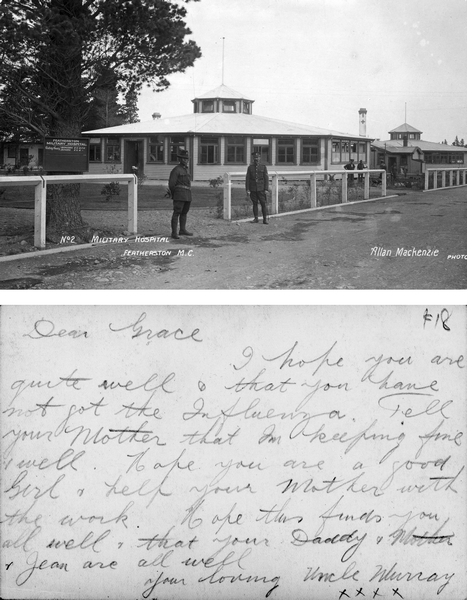 FEATHERSTON
MILITARY HOSPITAL
No2 MILITARY HOSPITAL
FEATHERSTON M.C.
Allan Mackenzie PHOTO
#18
Dear Grace
I hope you are
quite well & that you have
not got the Influenza. Tell
your Mother that Im keeping fine
& well. Hope you are a good
Girl & help your Mother with
the work. Hope this finds you
all well & that your Daddy & Mother
& Jean are all well
Your loving Uncle Murray
x x x x